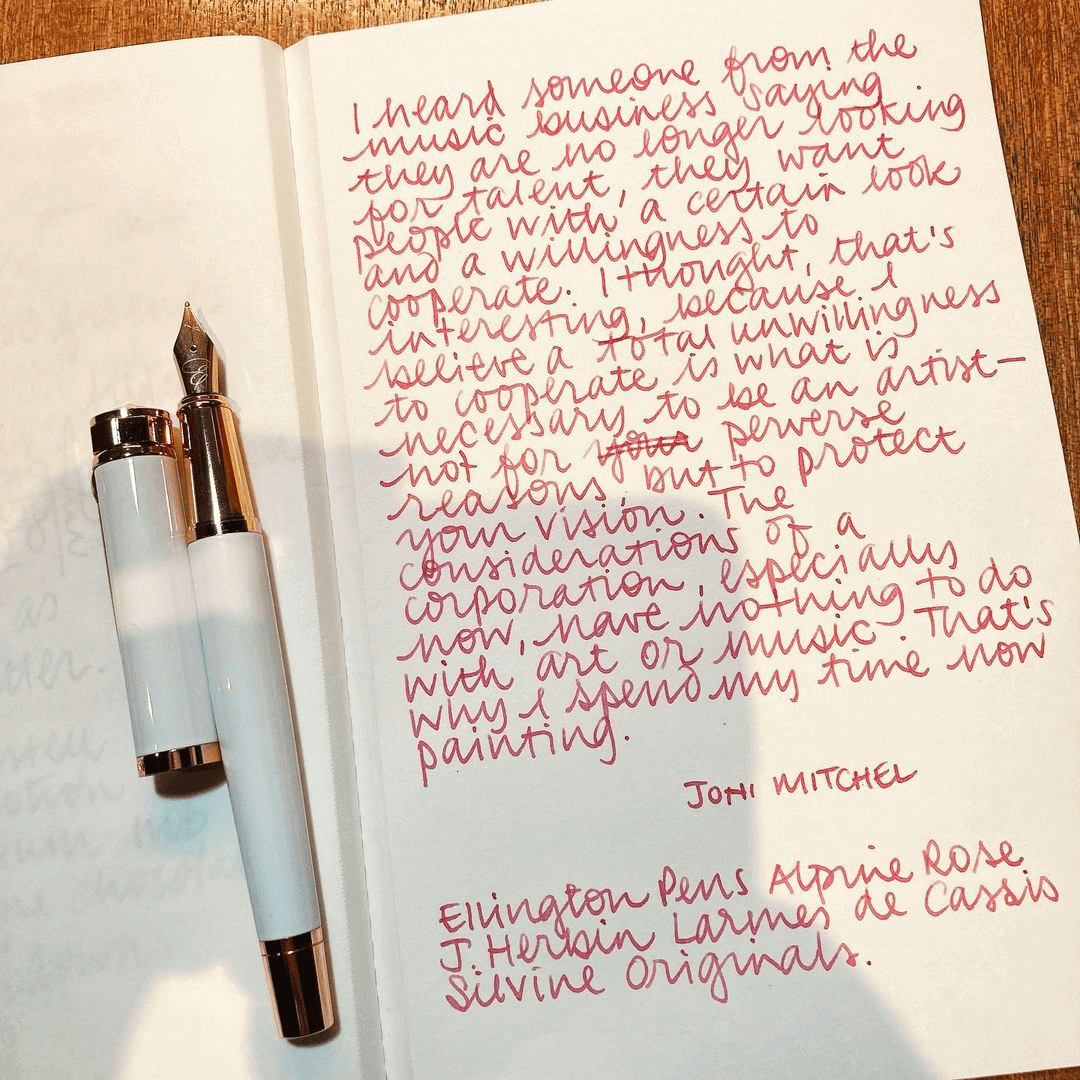 I heard someone from the
music business saying
they are no longer looking
for talent, they want
people with a certain look
and a willingness to
cooperate. I thought, that's
interesting, because I
believe a total unwillingness
to cooperate is what is
necessary to be an artist—
not for your perverse
reasons but to protect
your vision. The
considerations of a
corporation, especially
now, have nothing to do
with art or music. That's
why I spend my time now
painting.
JONI MITCHEL
Ellington Pens Alpine Rose
J. Herbin Larmes de Cassis
Silvine Originals.
as